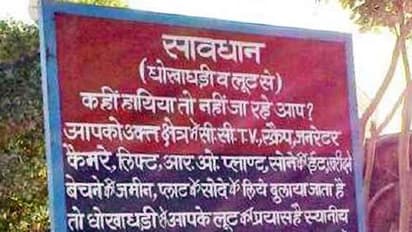 सावधान
(धोखाधड़ी व लूट से)
कहीं हाथिया तो नहीं जा रहे आप?
आपको उक्त क्षेत्र में सी.सी. T.V., स्क्रैप, जनरेटर
कैमरे, लिफ्ट, आर.ओ. प्लाण्ट, सोने की ईंट, खरीदने
बेचने की जमीन, प्लाट के सौदे के लिये बुलाया जाता है
तो धोखाधड़ी से आपके लूट का प्रयास है स्थानीय